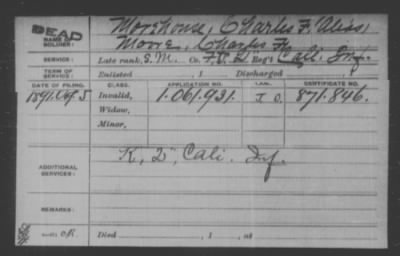 DEAD
NAME OF SOLDIER: Morehouse, Charles F. Alias,
Moore, Charles F.
SERVICE: Late rank, S.M. Co. F. & S. Reg't Cali. Inf.
TERM OF SERVICE: Enlisted , 1 Discharged , 1
DATE OF FILING. CLASS. APPLICATION NO. LAW. CERTIFICATE NO.
5 Invalid, 1.061.931. 871.846.
Widow,
Minor,
ADDITIONAL SERVICES: K, 2", Cali. Inf.
REMARKS:
Died , 1 , at